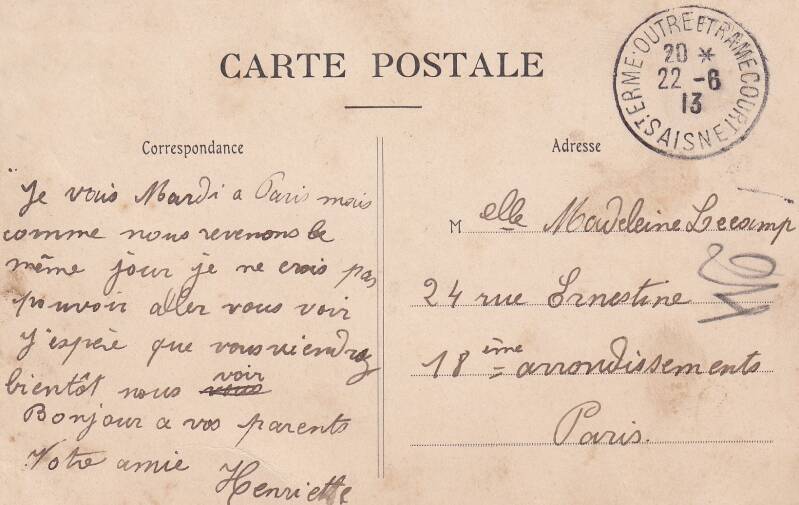 CARTE POSTALE
TERME-OUTRE ET TRAMECOURT
20 *
22 -6
13
(SAISNE)
Correspondance
Je vais Mardi a Paris mais
comme nous revenons le
même jour je ne crois pas
pouvoir aller vous voir
J'espère que vous viendrez
bientôt nous voir
Bonjour a vos parents
Votre amie
Henriette
Adresse
M elle Madeleine Lecamp
24 rue Ernestine
18 ème arrondissements
Paris.